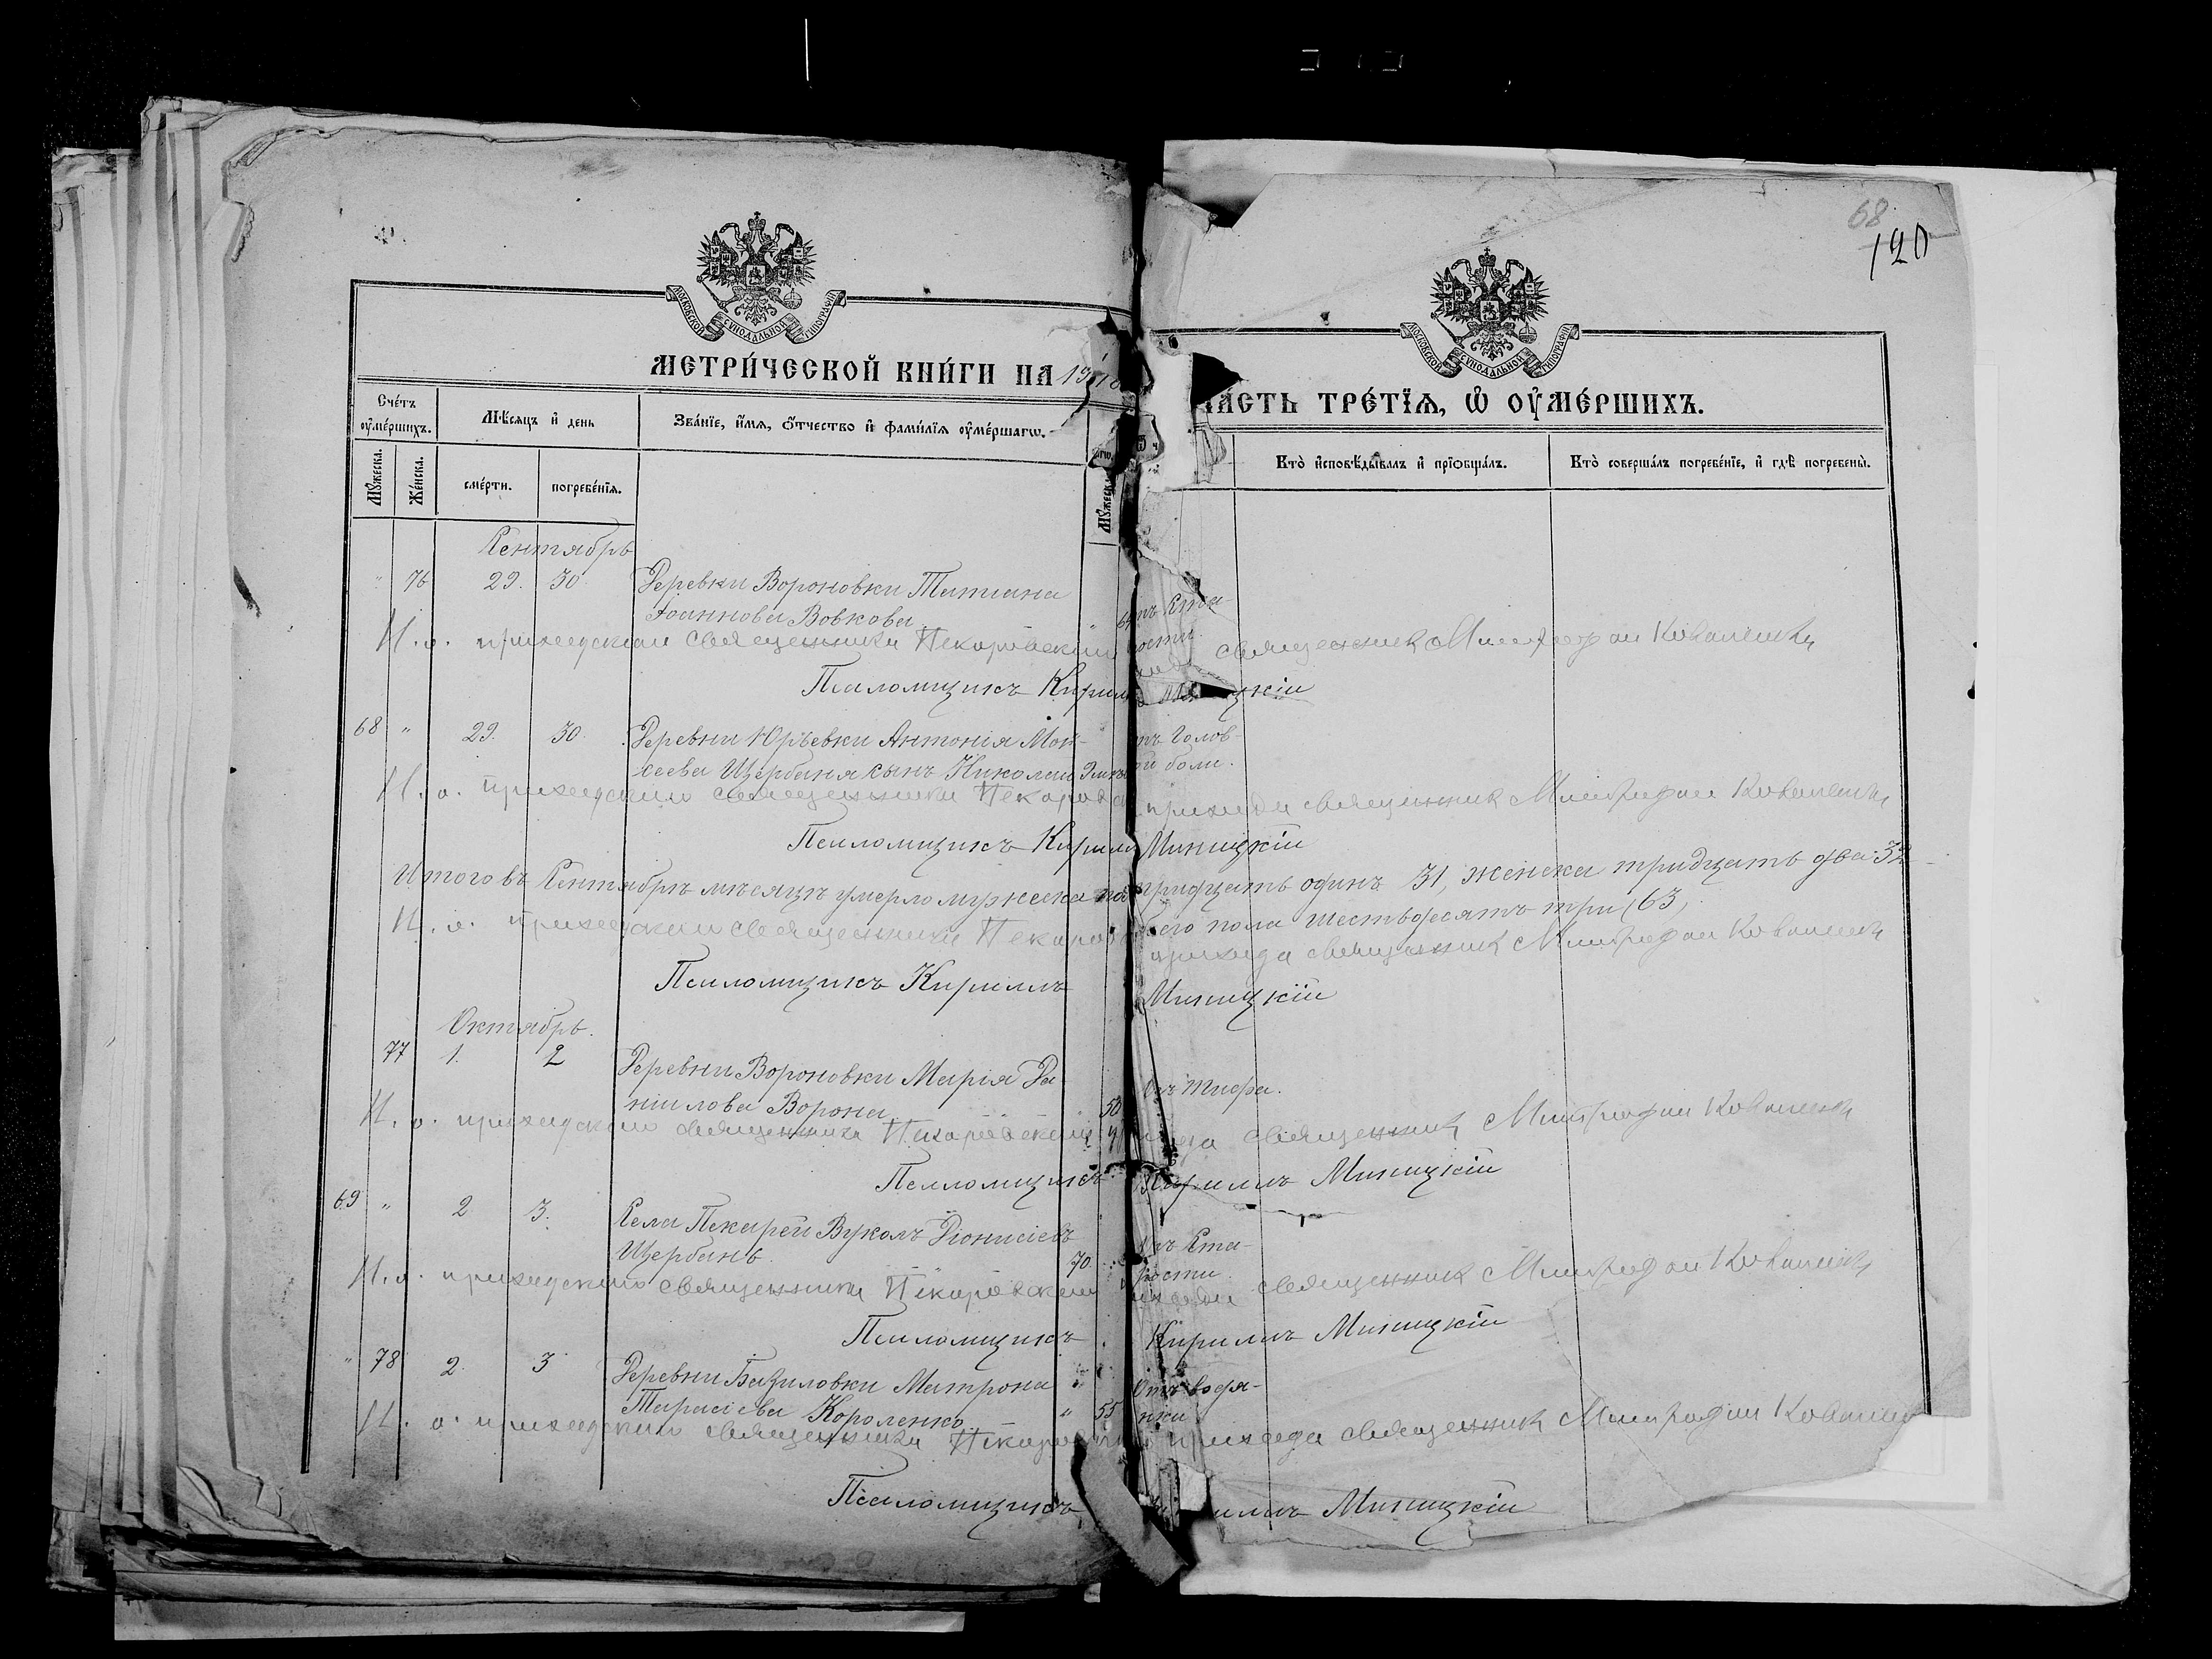 68
120
МОСКОВСКОЙ СѴНОДАЛЬНОЙ ТИПОГРАФІИ
МОСКОВСКОЙ СѴНОДАЛЬНОЙ ТИПОГРАФІИ
МЕТРИ́ЧЕСКОЙ КНИ́ГИ НА
ЧА́СТЬ ТРЕ́ТІѦ, Ѽ ОУ҆МЕ́РШИХЪ.
Сче́тъ оу҆ме́ршихъ.
Мѣ́сяцъ и҆ день
Зва́нїе, и҆́мя, ѻ҆́тчество и҆ фами́лїя оу҆ме́ршагѡ.
Кто̀ и҆сповѣ́дывалъ и҆ прїѡбща́лъ.
Кто̀ соверша́лъ погребе́нїе, и҆ гдѣ̀ погребены̀.
Мꙋ́жеска.
Же́нска.
сме́рти.
погребе́нїѧ.
Мꙋ́жеска
Сентябрь
" 76 29. 30. Деревни Вороновки Татиана
Іоаннова Вовкова
отъ Ста-
рости
И. о. приходскаго священника Пекаровскаго священник Митрофан Коваленко
Псаломщикъ Кирилл
68 " 29. 30. Деревни Юрьевки Антонія Мои-
сеева Щербаня сынъ Николай
отъ Голов-
ой боли.
И. о. приходскаго священника Пекаровск прихода священник Митрофан Коваленко
Псаломщикъ Кирилл Миницкій
Итого въ Сентябрѣ мѣсяцѣ умерло мужеска пола тридцать одинъ 31, женска тридцать два 32
обего пола шестьдесятъ три (63)
И. о. приходскаго священника Пекаров прихода священник Митрофан Коваленко
Псаломщикъ Кириллъ Миницкій
Октябрь.
77 1. 2 Деревни Вороновки Марія Да-
ніилова Ворона 50
Отъ тифа.
И. о. приходскаго священника Пекаровскаго прихода священник Митрофан Коваленко
Псаломщикъ Кириллъ Миницкій
69 " 2 3. Села Пекарей Вуколъ Діонисіевъ
Щербань 70
Отъ Ста-
рости
И. о. приходскаго священника Пекаровскаго прихода священник Митрофан Коваленко
Псаломщикъ Кириллъ Миницкій
" 78 2. 3 Деревни Базиловки Матрона
Тарасіева Короленко " 55
Отъ водя-
нки
И. о. приходскаго священника Пекаровскаго прихода священник Митрофан Коваленко
Псаломщикъ Кириллъ Миницкій